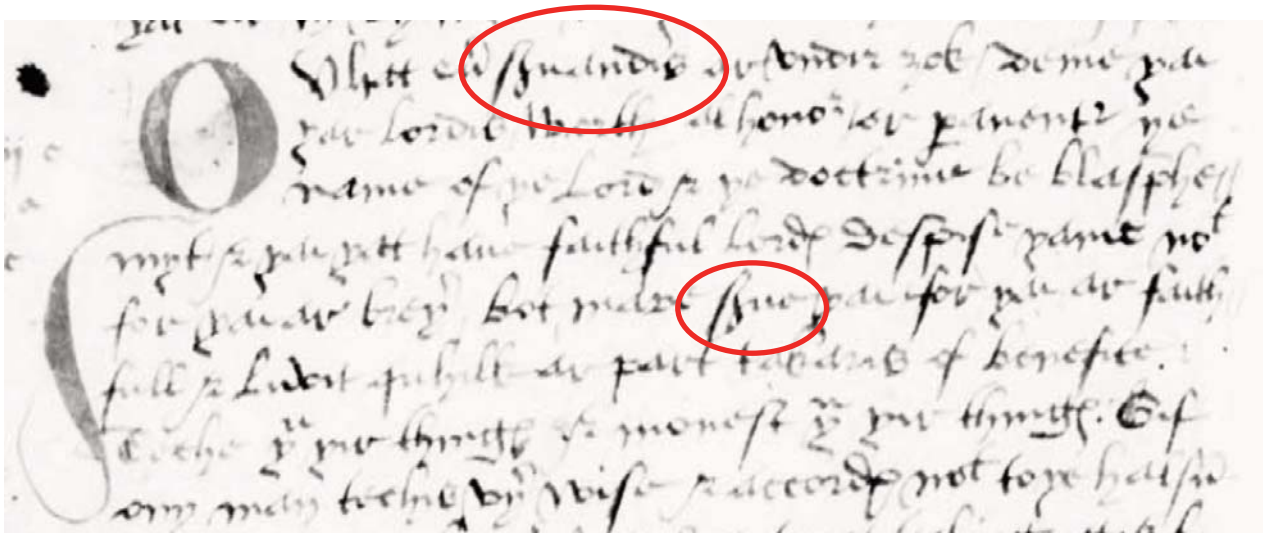 Quhat euir sᵉuandis ar vndir zok / deme yai
yar lordis worthi al honoʳ / or pauentʳ ye
name of ye Lord & ye doctrine be blasphe
myt & yai yatt haue faithful lordꝭ despise yame noᵗ
for yai ar breyʳ bot mare sᵉue yai for yai ar faith
full & Luvit quhilk ar part takaris of benefice.
Teche yᵘ yir thingꝭ & monest yᵘ yir thingꝭ. Gif
ony man techis vyʳ wise & accordꝭ noᵗ to ye halsū